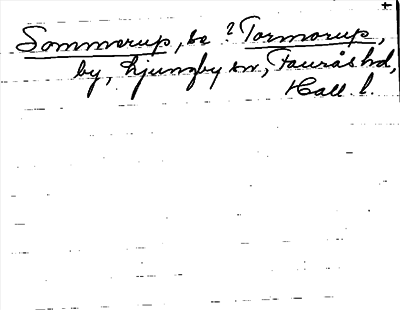 Sommerup, se ? Tormorup,
by, Ljungby sn, Faurås hd,
Hall. l.